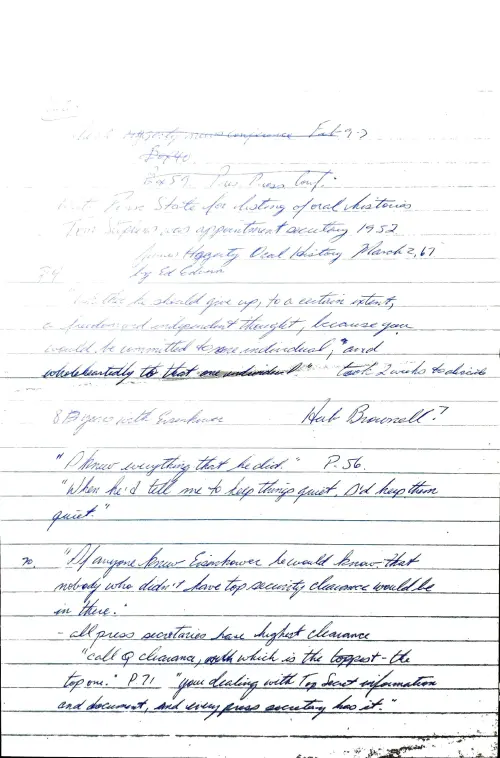 Hagerty news conference Feb 9-7
Box 40
Box 59 Press Conf.
State for listing of oral histories
was appointment secretary 1952
James Haggerty Oral History March 2, 67
by Ed Edwin
he should give up, to a certain extent,
a freedom and independent thought, because you
would be committed to one individual," and
wholeheartedly to that one individual." took 2 weeks to decide
8 years with Eisenhower Herb Brownell?
"I knew everything that he did." P. 56.
"When he'd tell me to keep things quiet, I'd keep them
quiet."
70. "If anyone knew Eisenhower he would know that
nobody who didn't have top security clearance would be
in there."
- all press secretaries have highest clearance
"call Q clearance, which is the toppest - the
top one." P 71 "your dealing with Top Secret information
and document, and every press secretary has it."